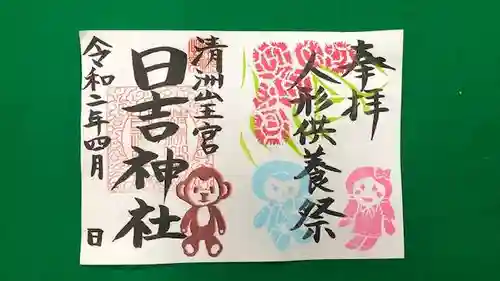 奉拝
人形供養祭
清洲山王宮
日吉神社
令和二年四月 日